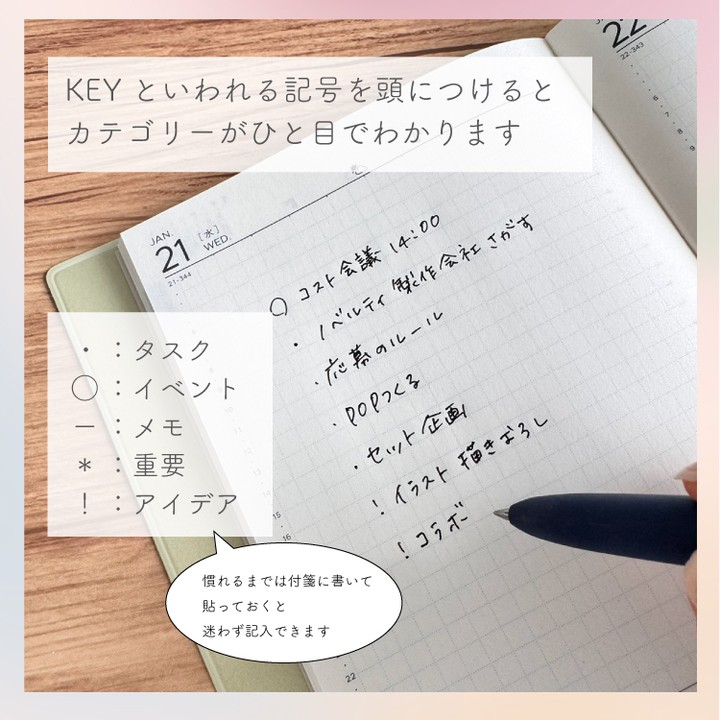 KEY といわれる記号を頭につけると
カテゴリーがひと目でわかります
JAN.
21
[水]
WED.
21-344
22
22-343
6
7
8
9
○ コスト会議 14:00
・ノベルティ 製作会社 さがす
・応募のルール
・POPつくる
・セット企画
! イラスト 描きおろし
! コラボ
・：タスク
◯：イベント
ー：メモ
＊：重要
！：アイデア
15
16
慣れるまでは付箋に書いて
貼っておくと
迷わず記入できます
22